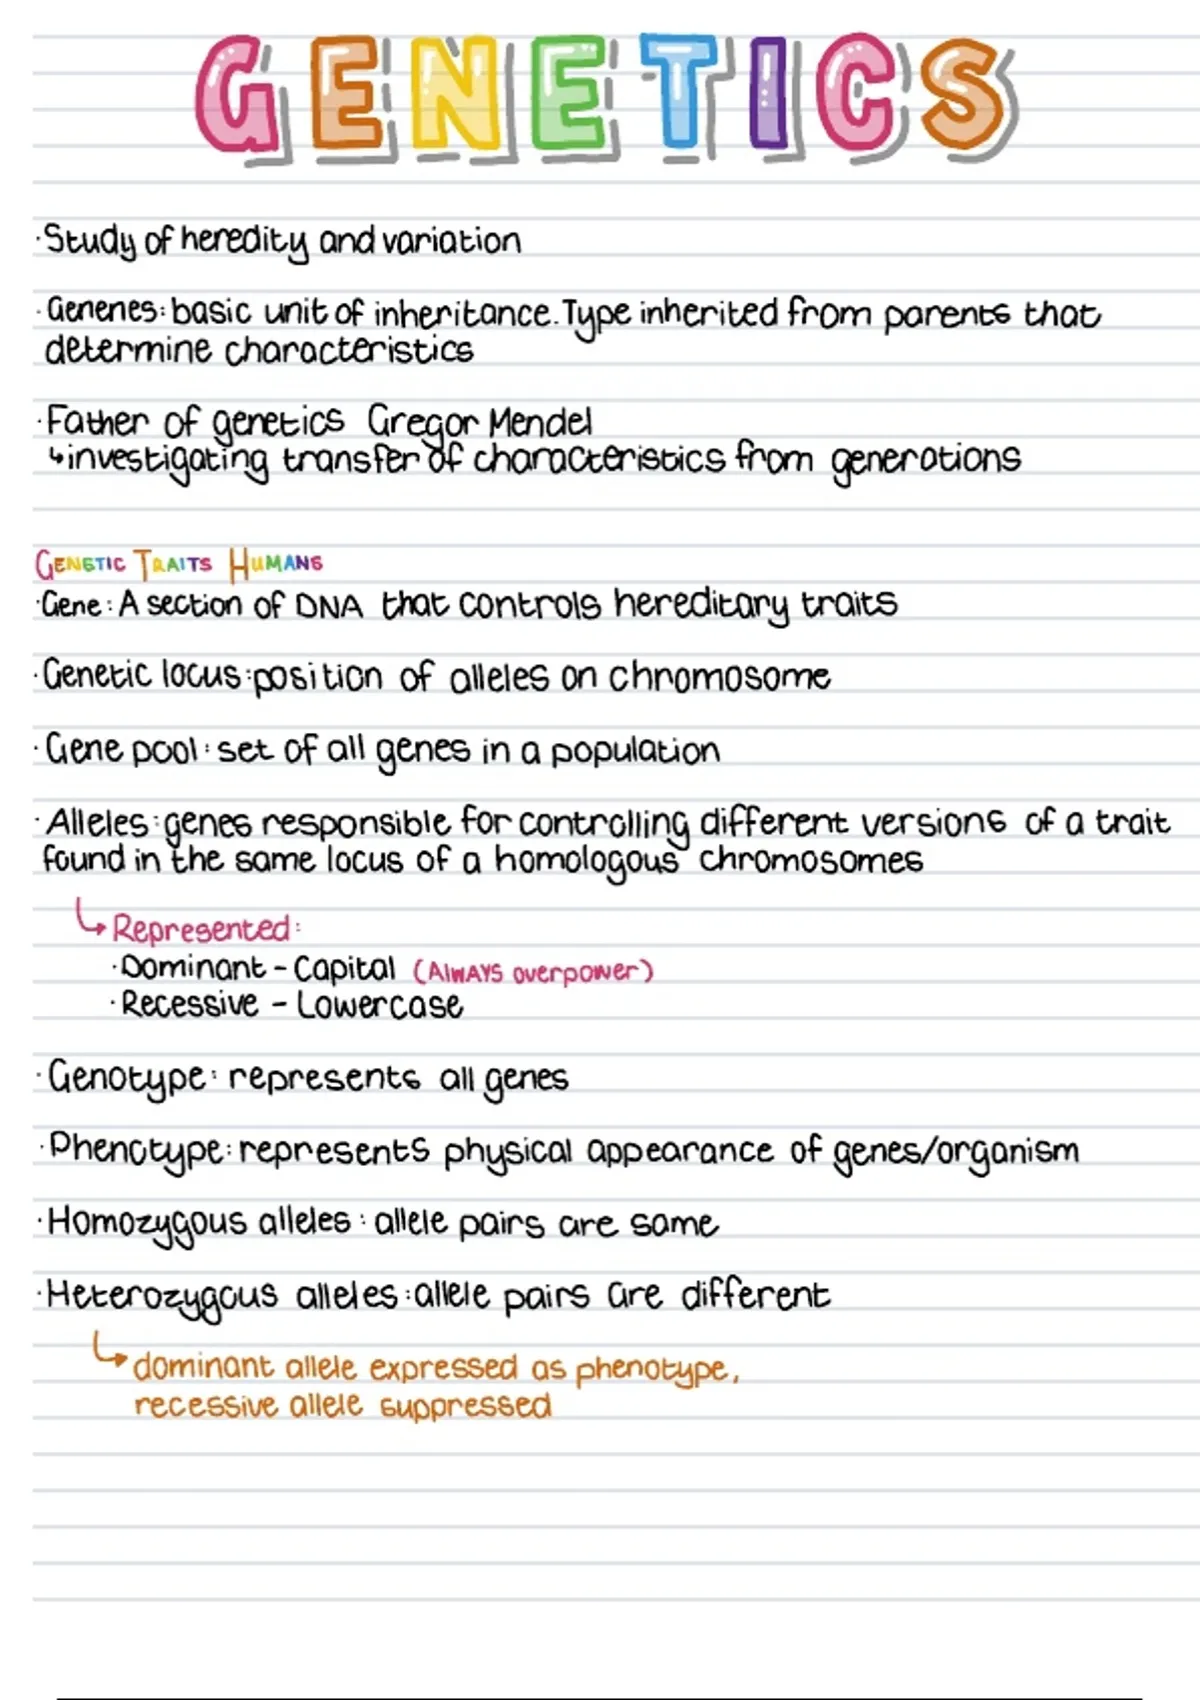 GENETICS
·Study of heredity and variation
·Genenes: basic unit of inheritance. Type inherited from parents that
determine characteristics
·Father of genetics Gregor Mendel
↳investigating transfer of characteristics from generations
GENETIC TRAITS HUMANS
·Gene: A section of DNA that controls hereditary traits
·Genetic locus: position of alleles on chromosome
·Gene pool: set of all genes in a population
·Alleles: genes responsible for controlling different versions of a trait
found in the same locus of a homologous chromosomes
↳Represented:
·Dominant - Capital (Always overpower)
·Recessive - Lowercase
·Genotype: represents all genes
·Phenotype: represents physical appearance of genes/organism
·Homozygous alleles: allele pairs are same
·Heterozygous alleles: allele pairs are different
↳dominant allele expressed as phenotype,
recessive allele suppressed